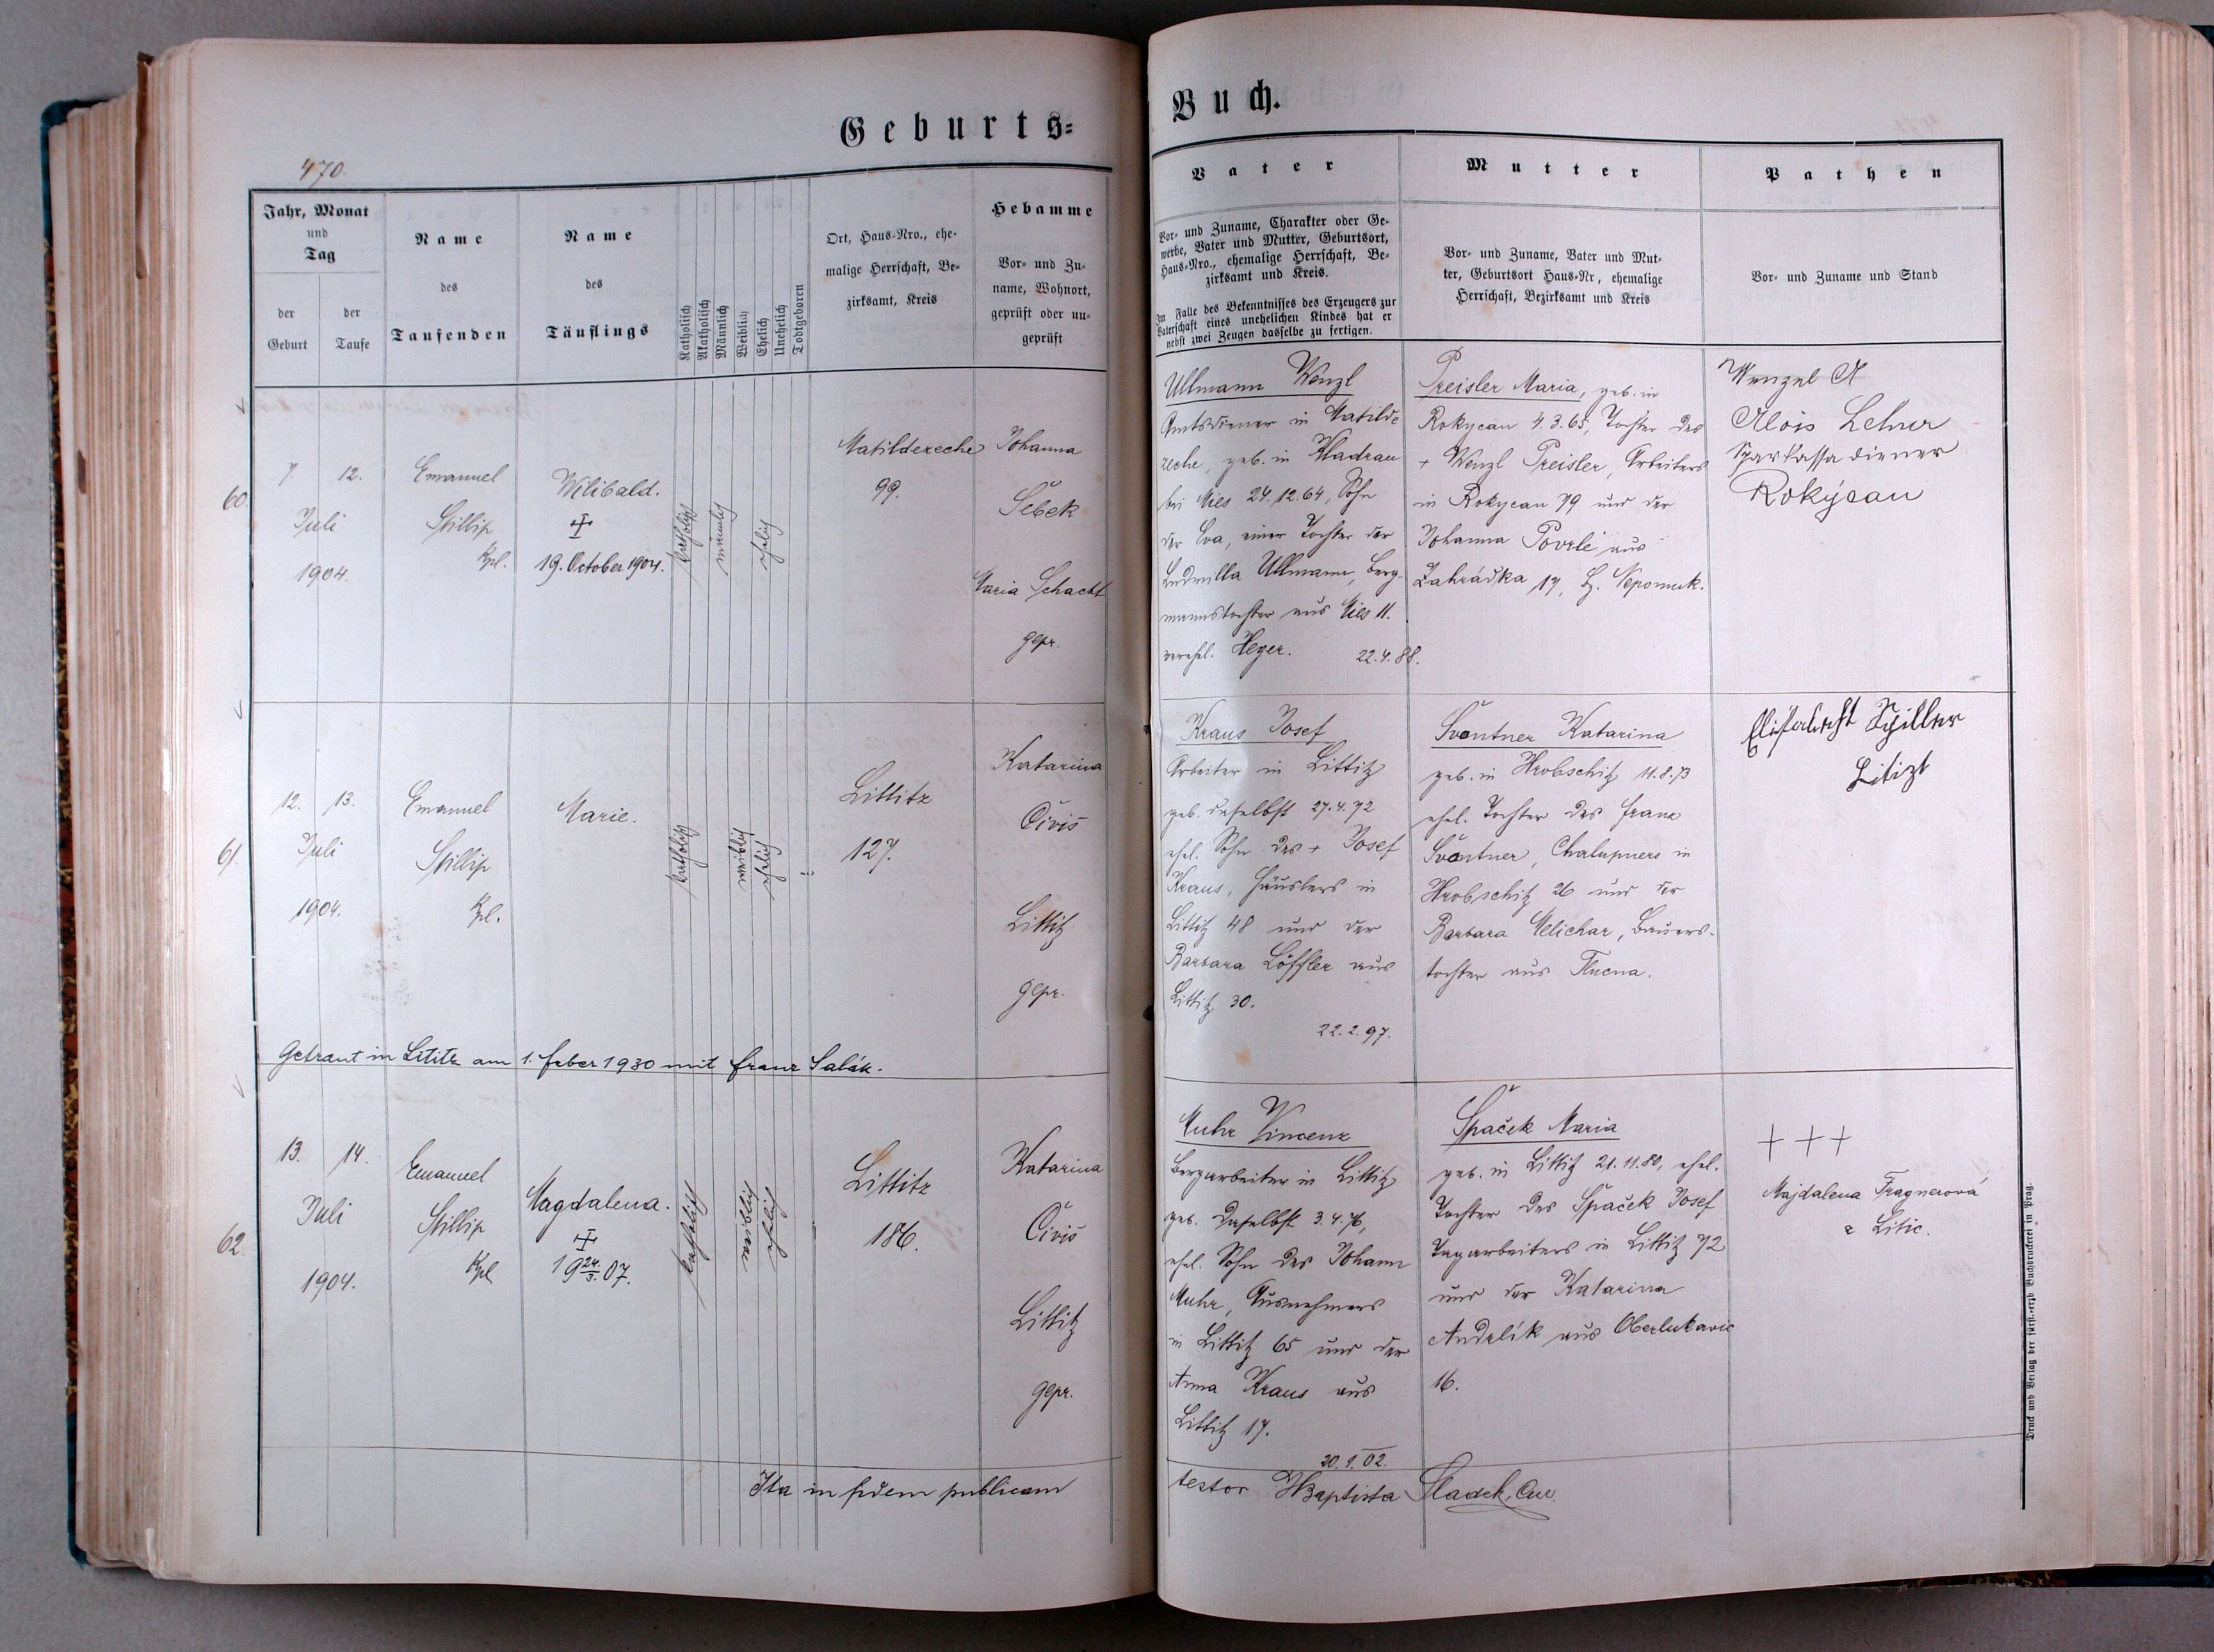 Geburts=
Buch.
470.
Jahr, Monat
und
Tag
der
Geburt
der
Taufe
Name
des
Taufenden
Name
des
Täuflings
Katholisch
Akatholisch
Männlich
Weiblich
Ehelich
Unehelich
Todtgeboren
Ort, Haus-Nro., ehe-
malige Herrschaft, Be-
zirksamt, Kreis
Hebamme
Vor- und Zu-
name, Wohnort,
geprüft oder un-
geprüft
Vater
Vor- und Zuname, Charakter oder Ge-
werbe, Vater und Mutter, Geburtsort,
Haus-Nro., ehemalige Herrschaft, Be-
zirksamt und Kreis.
Im Falle des Bekenntnisses des Erzeugers zur
Vaterschaft eines unehelichen Kindes hat er
nebst zwei Zeugen dasselbe zu fertigen.
Mutter
Vor- und Zuname, Vater und Mut-
ter, Geburtsort Haus-Nr, ehemalige
Herrschaft, Bezirksamt und Kreis
Pathen
Vor- und Zuname und Stand
60.
7. 12.
Juli
1904.
Emanuel
Stillip
Kpl.
Wilibald.
19. October 1904.
katholisch
männlich
ehelich
Matildezeche
99.
Johanna
Šebek
Maria Schacht
gepr.
Ullmann Wenzl
Amtsdiener in Matilde
zeche, geb. in Kladrau
bei Mies 24.12.64, Sohn
der Eva, einer Tochter der
Ludmilla Ullmann, Berg-
mannstochter aus Mies 11.
verehl. Heger. 22.4.88.
Preisler Maria, geb. in
Rokycan 4.3.65, Tochter des
+ Wenzl Preisler, Arbeiters
in Rokycan 79 und der
Johanna Povrlé aus
Zahrádka 17, H. Nepomuk.
Wenzel A
Alois Lehner
Sparkassa diener
Rokýcan
61.
12. 13.
Juli
1904.
Emanuel
Stillip
Kpl.
Marie.
katholisch
weiblich
ehelich
Littitz
127.
Katarina
Čiviš
Littitz
gepr.
Getraut in Lititz am 1. Feber 1930 mit Franz Salák.
Kraus Josef
Arbeiter in Littitz
geb. daselbst 27.4.72
ehel. Sohn des + Josef
Kraus, Häuslers in
Littitz 48 und der
Barbara Löffler aus
Littitz 30.
22.2.97.
Švantner Katarina
geb. in Hrobschitz 11.8.73
ehel. Tochter des Franz
Švantner, Chalupners in
Hrobschitz 26 und der
Barbara Melichar, Bauers-
tochter aus Tlucna.
Elisabeht Schiller
Litizt
62.
13. 14.
Juli
1904.
Emanuel
Stillip
Kpl
Magdalena.
19 24/3. 07.
katholisch
weiblich
ehelich
Littitz
186.
Katarina
Čiviš
Littitz
gepr.
Muhr Vincenz
Bergarbeiter in Littitz
geb. daselbst 3.4.76,
ehel. Sohn des Johann
Muhr, Ausnehmers
in Littitz 65 und der
Anna Kraus aus
Littitz 17.
20.1.02.
Špaček Maria
geb. in Littitz 21.11.80, ehel.
Tochter des Špaček Josef
Tagarbeiters in Littitz 72
und der Katarina
Andrlík aus Oberlukavic
16.
+ + +
Majdalena Fragnerová
z Litic.
Ita in fidem publicam
testor JBaptista Sladek, Cur.
Druck und Verlag der fürst.-erzb Buchdruckerei in Prag.